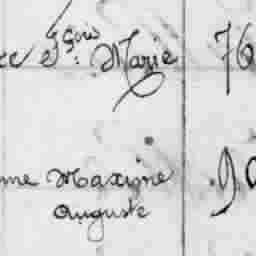 ce Fçois Marie 76
me Maxime 90
Auguste